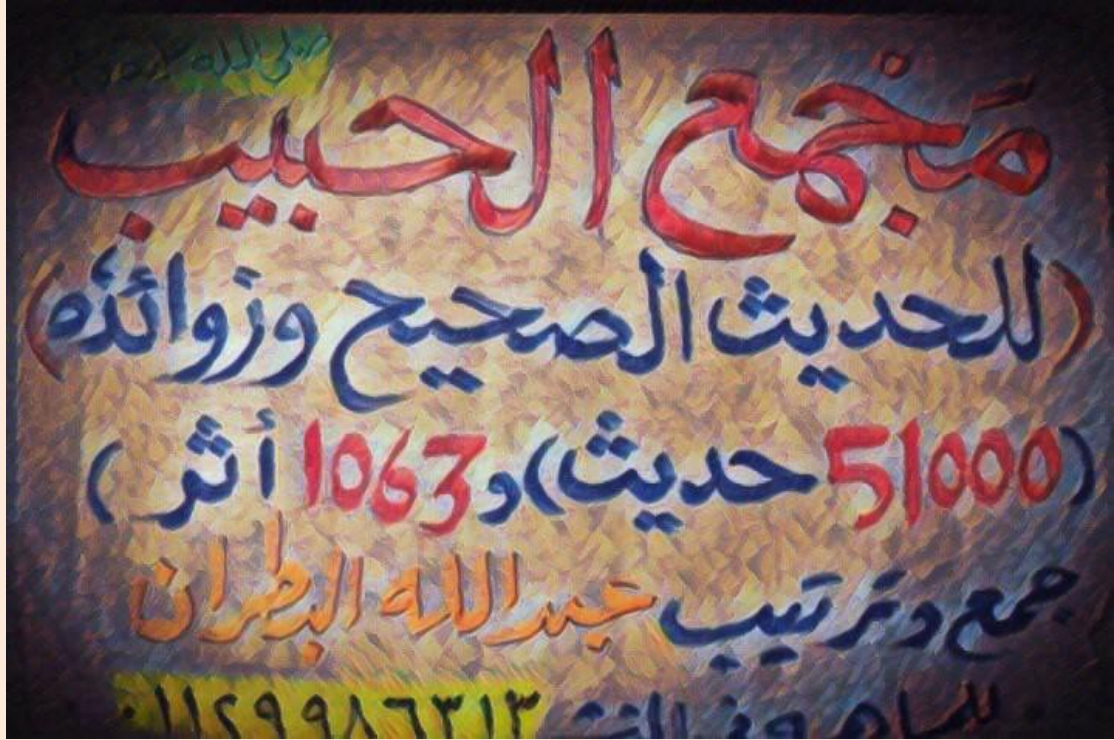 صلى الله
مَجمع الحبيب
(للحديث الصحيح وزوائده)
(51000 حديث) و1063 أثر)
جمع وترتيب عبدالله البطران
٠١١٢٩٩٨٦٣١٣